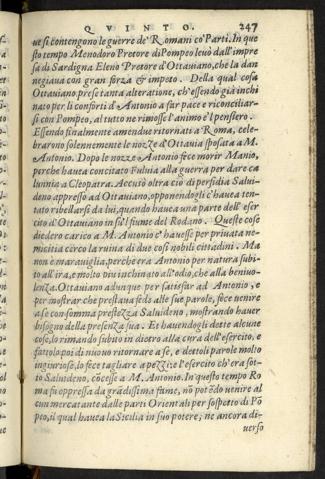 QVINTO. 247
ue si contengono le guerre de' Romani co' Parti. In que
sto tempo Menodoro Pretore di Pompeo leuò dall'impre
sa di Sardigna Eleno Pretore d'Ottauiano, che la dan
negiaua con gran forza & impeto. Della qual cosa
Ottauiano prese tanta alteratione, ch'essendo già inchi
nato per li conforti d'Antonio a far pace e riconciliar-
si con Pompeo, al tutto ne rimosse l'animo e'l pensiero.
Essendo finalmente amendue ritornati a Roma, cele-
brarono solennemente le nozze d'Ottauia sposata a M.
Antonio. Dopo le nozze Antonio fece morir Manio,
perche hauea concitato Fuluia alla guerra per dare ca
lumnia a Cleopatra. Accusò oltra ciò di perfidia Salui-
deno appresso ad Ottauiano, opponendogli c'hauea ten-
tato ribellarsi da lui, quando hauea una parte dell'eser
cito d'Ottauiano in su'l fiume del Rodano. Queste cose
diedero carico a M. Antonio c'hauesse per priuata ne-
micitia cerco la ruina di due così nobili cittadini. Ma
non è marauiglia, perche era Antonio per natura subi-
to all'ira, e molto piu inchinato all'odio, che alla beniuo-
lenza. Ottauiano adunque per satisfar ad Antonio, e
per mostrar che prestaua fede alle sue parole, fece uenire
a se con somma prestezza Saluideno, mostrando hauer
bisogno della presenza sua. Et hauendogli dette alcune
cose, lo rimando subito in dietro alla cura dell'esercito, e
fattolo poi di nuouo ritornare a se, e dettoli parole molto
ingiuriose, lo fece tagliare a pezzi: e l'esercito ch'era sot-
to Saluideno, cõcesse a M. Antonio. In questo tempo Ro
ma fu oppressa da grãdissima fame, nõ potẽdo uenire al
cun mercatante dalle parti Orientali per sospetto di Põ
peo, il qual hauea la Sicilia in suo potere; ne ancora di-
uerso